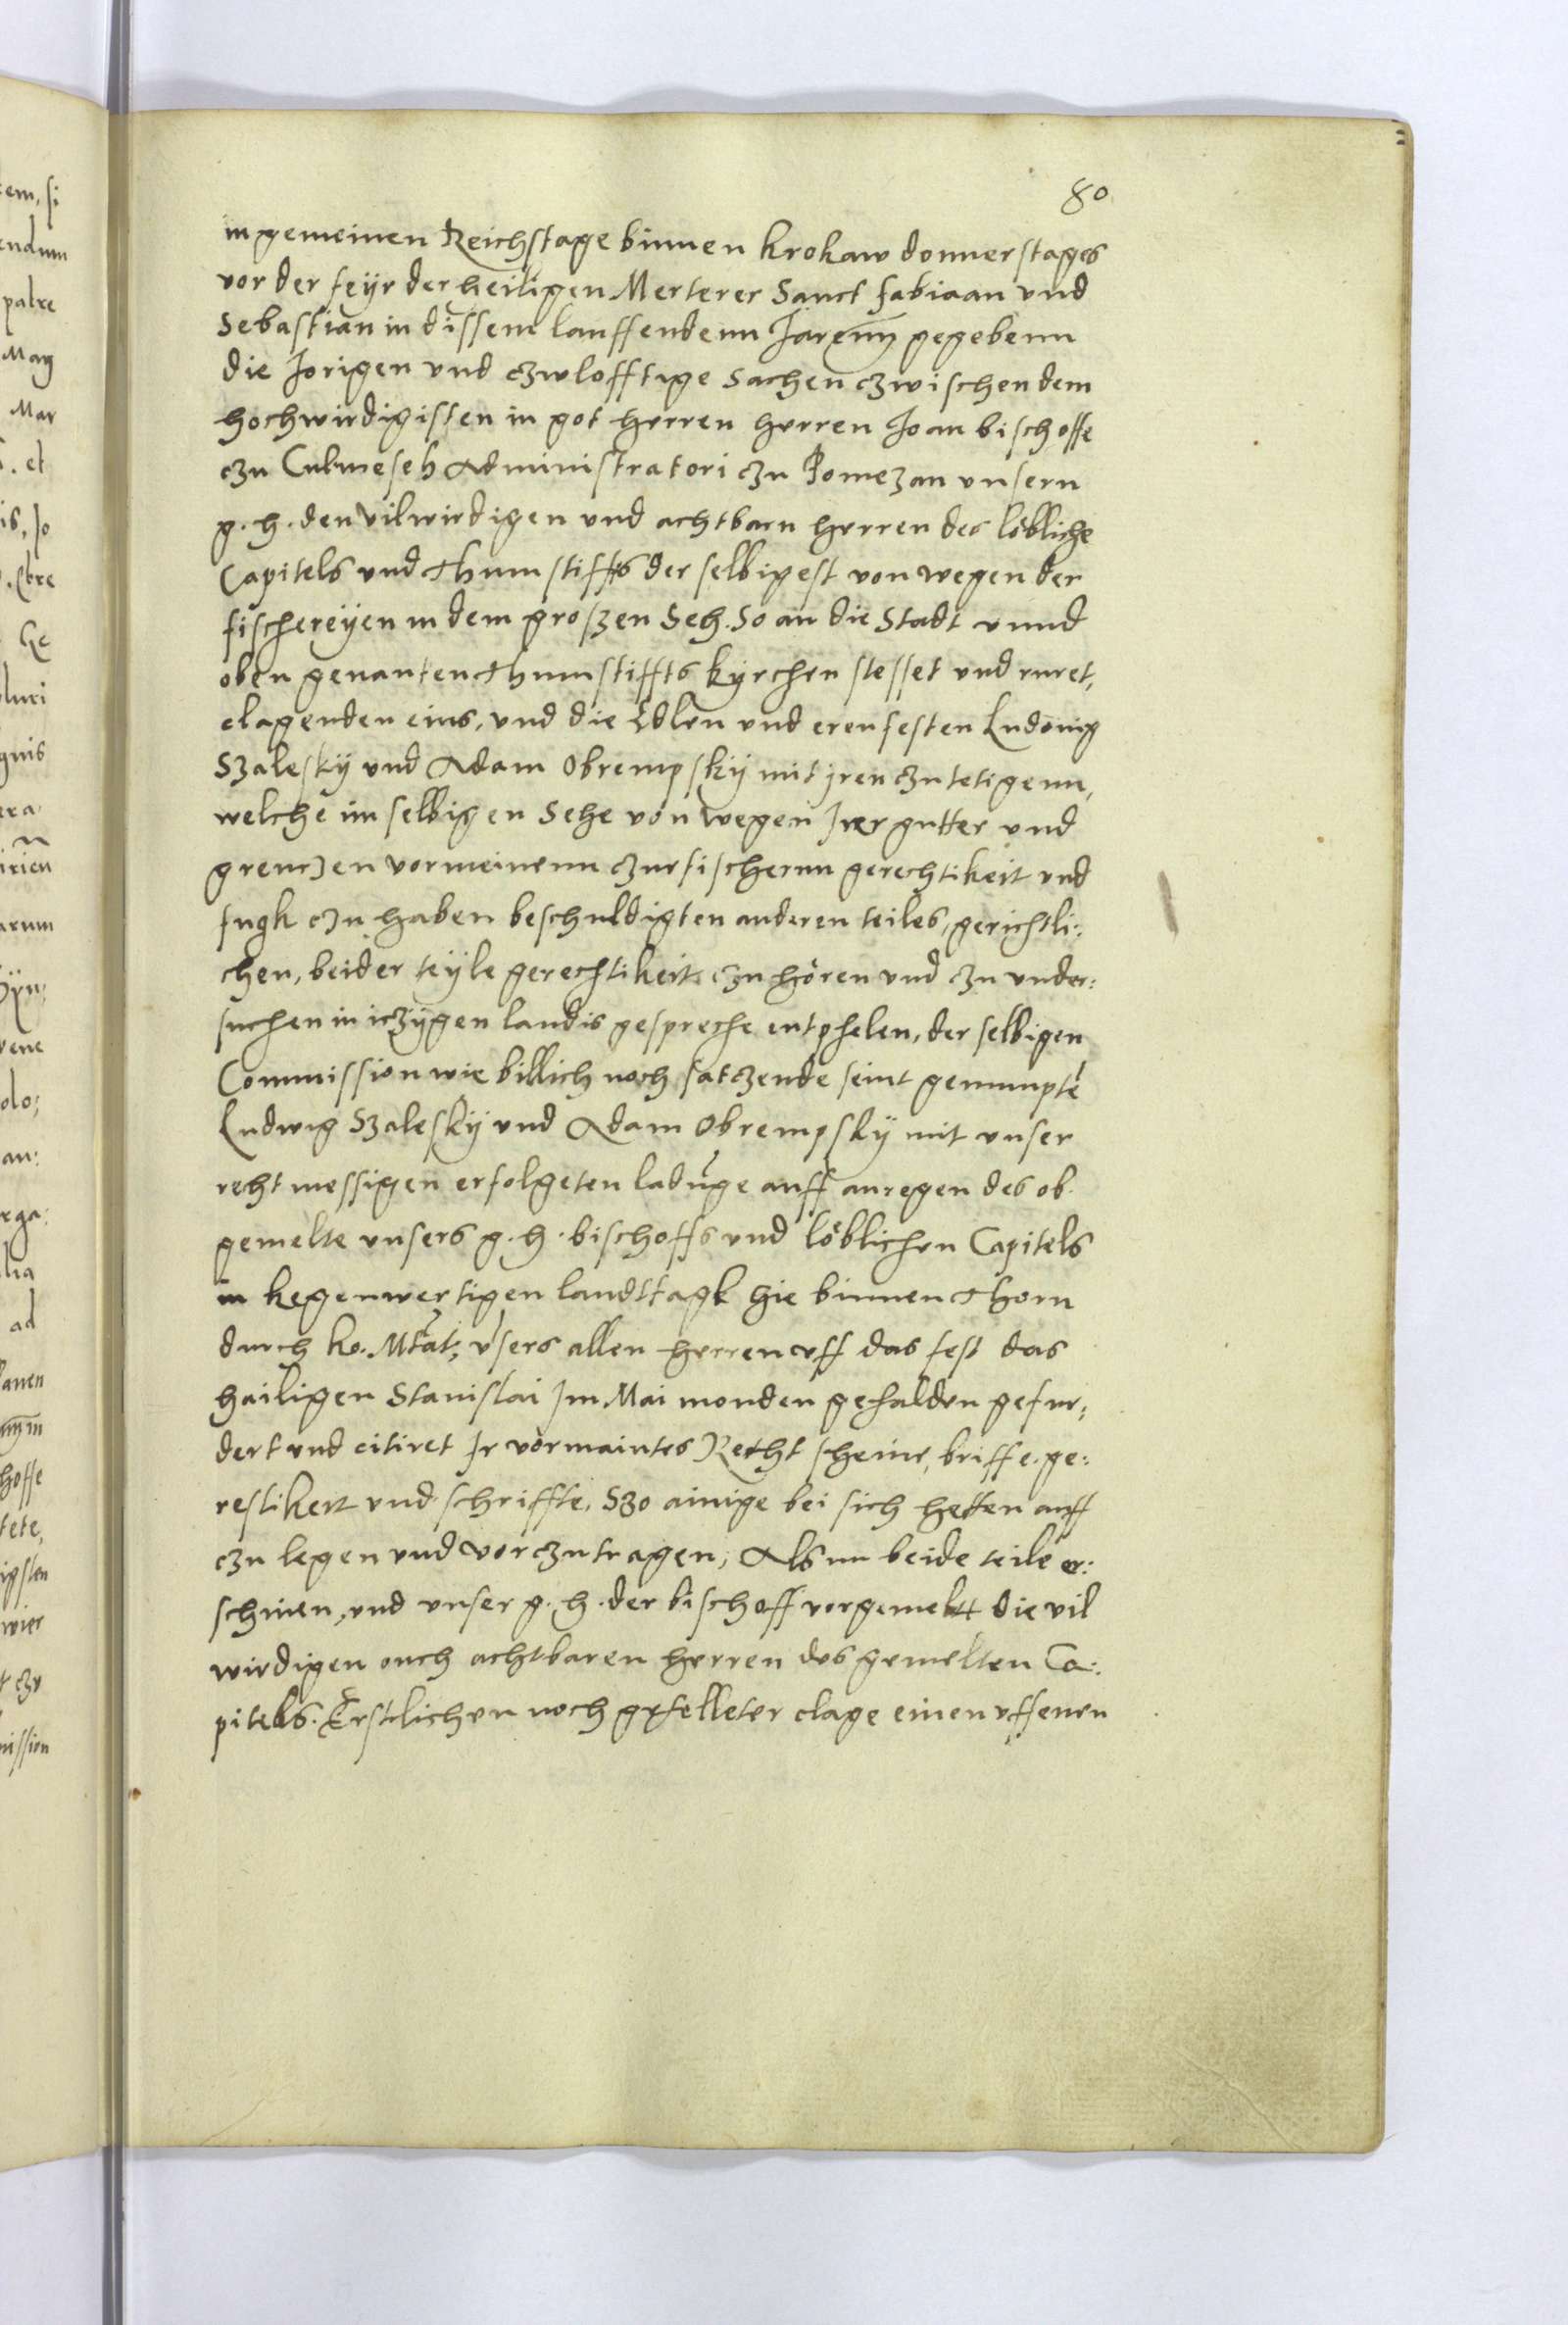 80
in gemeinen Reichstage binnen krokaw donnerstages
vor der feÿr der heiligen Merterer Sanct fabiaan und
Sebastian in dissem lauffendenn Jare gegebenn
die Jorigen und czwlofftige sachen czwischen dem
hochwirdigisten in got herren herren Joan bischoffe
czu Culmeseh Administratori czu Pomezan unsern
g. h. den vilwirdigen und achtbarn herren des löbliche
Capitels und Thumstiffts der selbigest von wegen der
fischereÿen in dem groszen Seh. So an die Stadt unnd
oben genanten Thumstiffts kÿrchen stesset und ruret,
clagenden eins, und die Edlen und erenfesten Ludowig
Szaleskÿ und Adam Obrempskÿ mit jren czutetigenn,
welche im selbigen Sehe von wegen Irer gutter und
grenczen vormeinenn czur fischernn gerechtikeit und
fugk czu haben beschuldigten anderen teiles, gerichtli:
chen, beider teÿle gerechtikeit czu hören und czu under:
suchen in iczÿgen landis gespreche entphelen, der selbigen
Commission wie billich noch satczende seint genumpte
Ludwig Szaleskÿ und Adam Obrempskÿ mit unser
recht messigen erfolgeten laduge auff anregen des ob
gemelte unsers g. h. bischoffs und löblichen Capitels
in kegenwertigen landttagk hie binnen Thorn
durch ko. Mtat, users allen herren uff das fest das
hailigen Stanislai Im Mai monden gehalden gefur:
dert und citiret Ir vormaintes Recht scheine, briffe. ge:
restikeit und schriffte, Szo ainige bei sich hetten auff
czu legen und vorczutragen, Als nu beide teile er:
schinen, und unser g. h. der bischoff vorgemelt die vil
wirdigen ouch achtbaren herren des gemelten Ca:
pitels. Erstlichen noch gefelleter clage einen uffenen